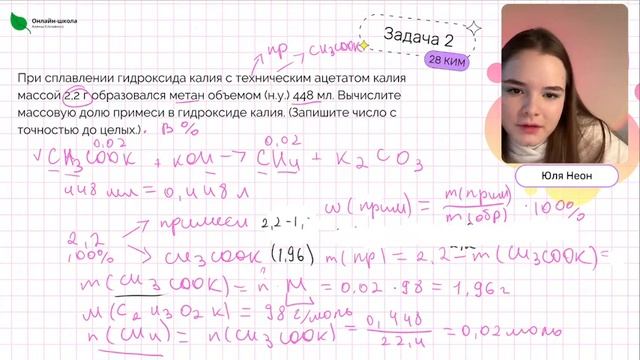 Онлайн-школа
Задача 2
28 КИМ
пр CH3COOK
При сплавлении гидроксида калия с техническим ацетатом калия
массой 2,2 г образовался метан объемом (н.у.) 448 мл. Вычислите
массовую долю примеси в гидроксиде калия. (Запишите число с
точностью до целых.). в %
Юля Неон
0,02 0,02
CH3COOK + KOH → CH4 + K2CO3
448 мл = 0,448 л
ω(прим) = m(прим) / m(обр) · 100%
2,2 100%
примеси 2,2-1,
CH3COOK (1,96) m(пр) = 2,2 - m(CH3COOK) =
m(CH3COOK) = n · M = 0,02 · 98 = 1,96 г
M(C2H3O2K) = 98 г/моль
n(CH4) = n(CH3COOK) = 0,448 / 22,4 = 0,02 моль